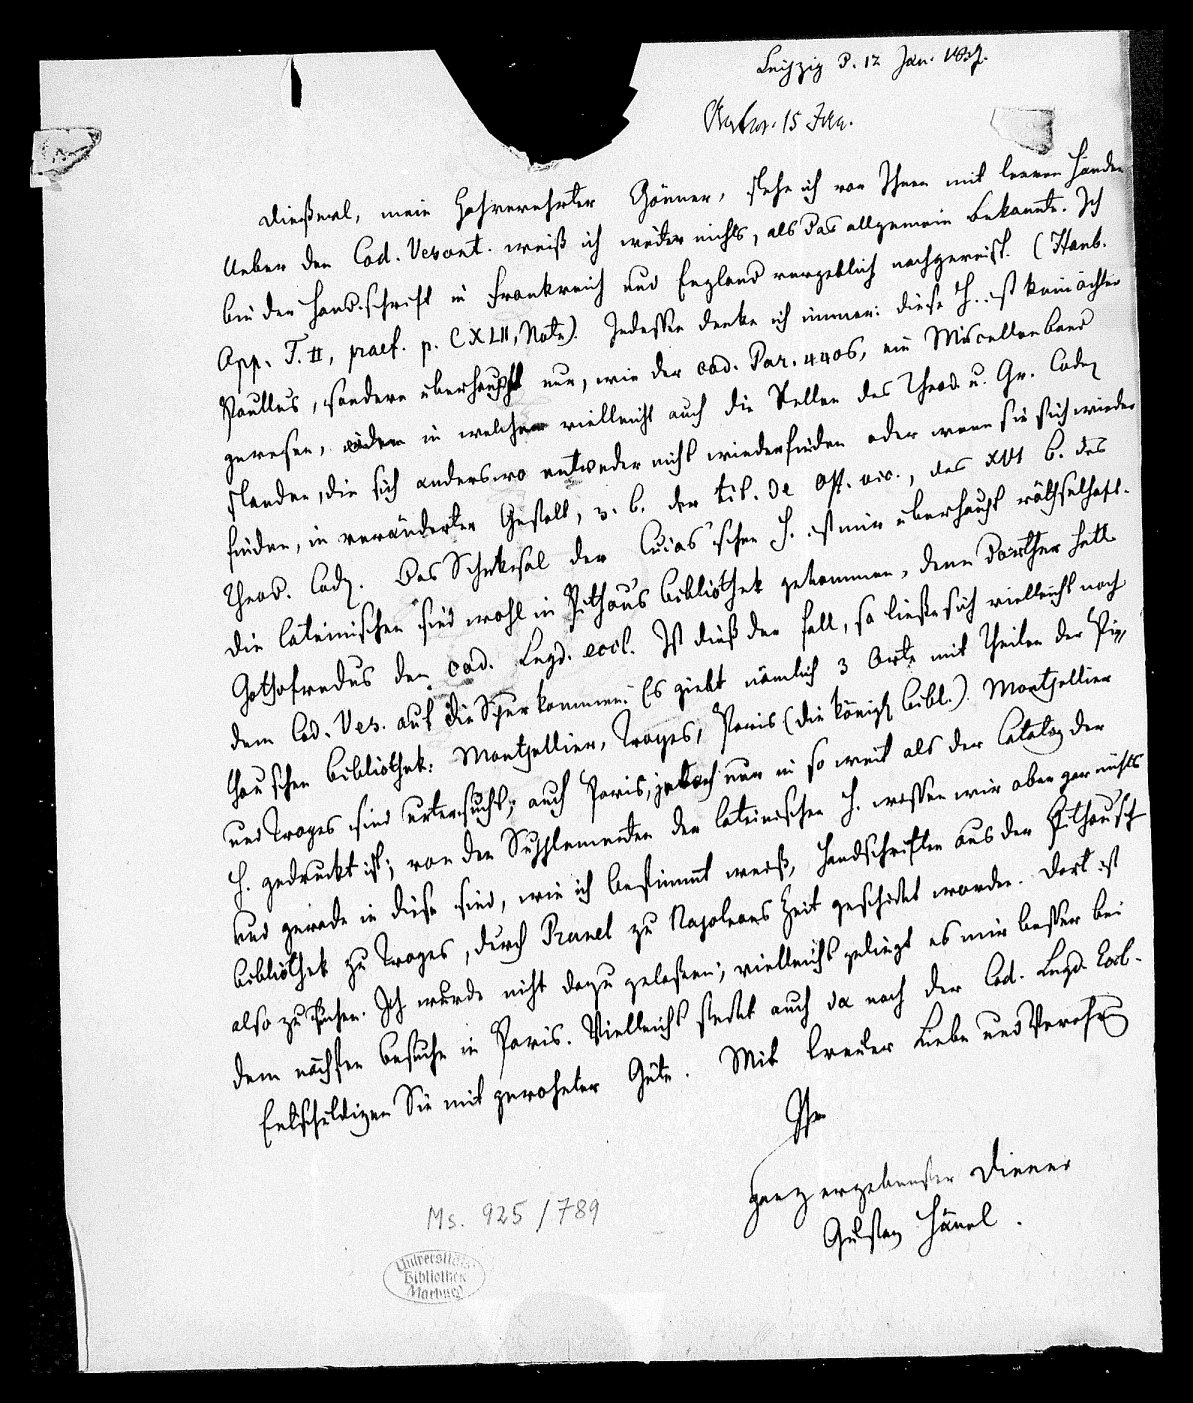 Leipzig d. 12 Jan. 1837.
15 Jan.
Dießmal, mein Hochverehrter Gönner, stehe ich vor Ihnen mit leeren Händen
Ueber den Cod. Vesont. weiß ich weiter nichts, als das allgemein Bekannte. Ich
bin der Handschrift in Frankreich und England vergeblich nachgereist. (Haub.
Opp. T. II, praef. p. CXLII, Note). Indessen denke ich immer: diese H. ist kein ächter
Paullus, sondern überhaupt nur, wie der cod. Par. 4406, ein Miscellanband
gewesen, in welchem vielleicht auch die Stellen des Theod. u. Gr. Codex
standen, die sich anderswo entweder nicht wiederfinden oder wenn sie sich wieder
finden, in veränderter Gestalt, z. b. der tit. de off. vic., des XVI b. des
Theod. Cod. Das Schicksal der Cuias'schen H. ist mir überhaupt räthselhaft.
Die lateinischen sind wohl in Pithou's Bibliothek gekommen, denn dorther hatte
Gothofredus den cod. Lugd. eccl. Ist dieß der Fall, so ließe sich vielleicht noch
dem Cod. Ves. auf die Spur kommen. Es giebt nämlich 3 Orte mit Theilen der Pi-
thou'schen Bibliothek: Montpellier, Troyes, Paris (die königl. Bibl.). Montpellier
und Troyes sind untersucht; auch Paris, jedoch nur in so weit als der Catalog der
H. gedruckt ist; von den Supplementen der lateinischen H. wissen wir aber gar nichts
und gerade in diese sind, wie ich bestimmt weiß, Handschriften aus der Pithou'sch
Bibliothek zu Troyes, durch Prunel zu Napoleons Zeit geschickt worden. Dort ist
also zu suchen. Ich wurde nicht dazu gelassen; vielleicht gelingt es mir besser bei
dem nächsten Besuche in Paris. Vielleicht steckt auch da noch der Cod. Lugd. Eccl.
Entschuldigen Sie mit gewohnter Güte. Mit treuer Liebe und Verehrung
Ihr
ganz ergebenster Diener
Gustav Hänel.
Ms. 925/789
Universitäts-
Bibliothek
Marburg